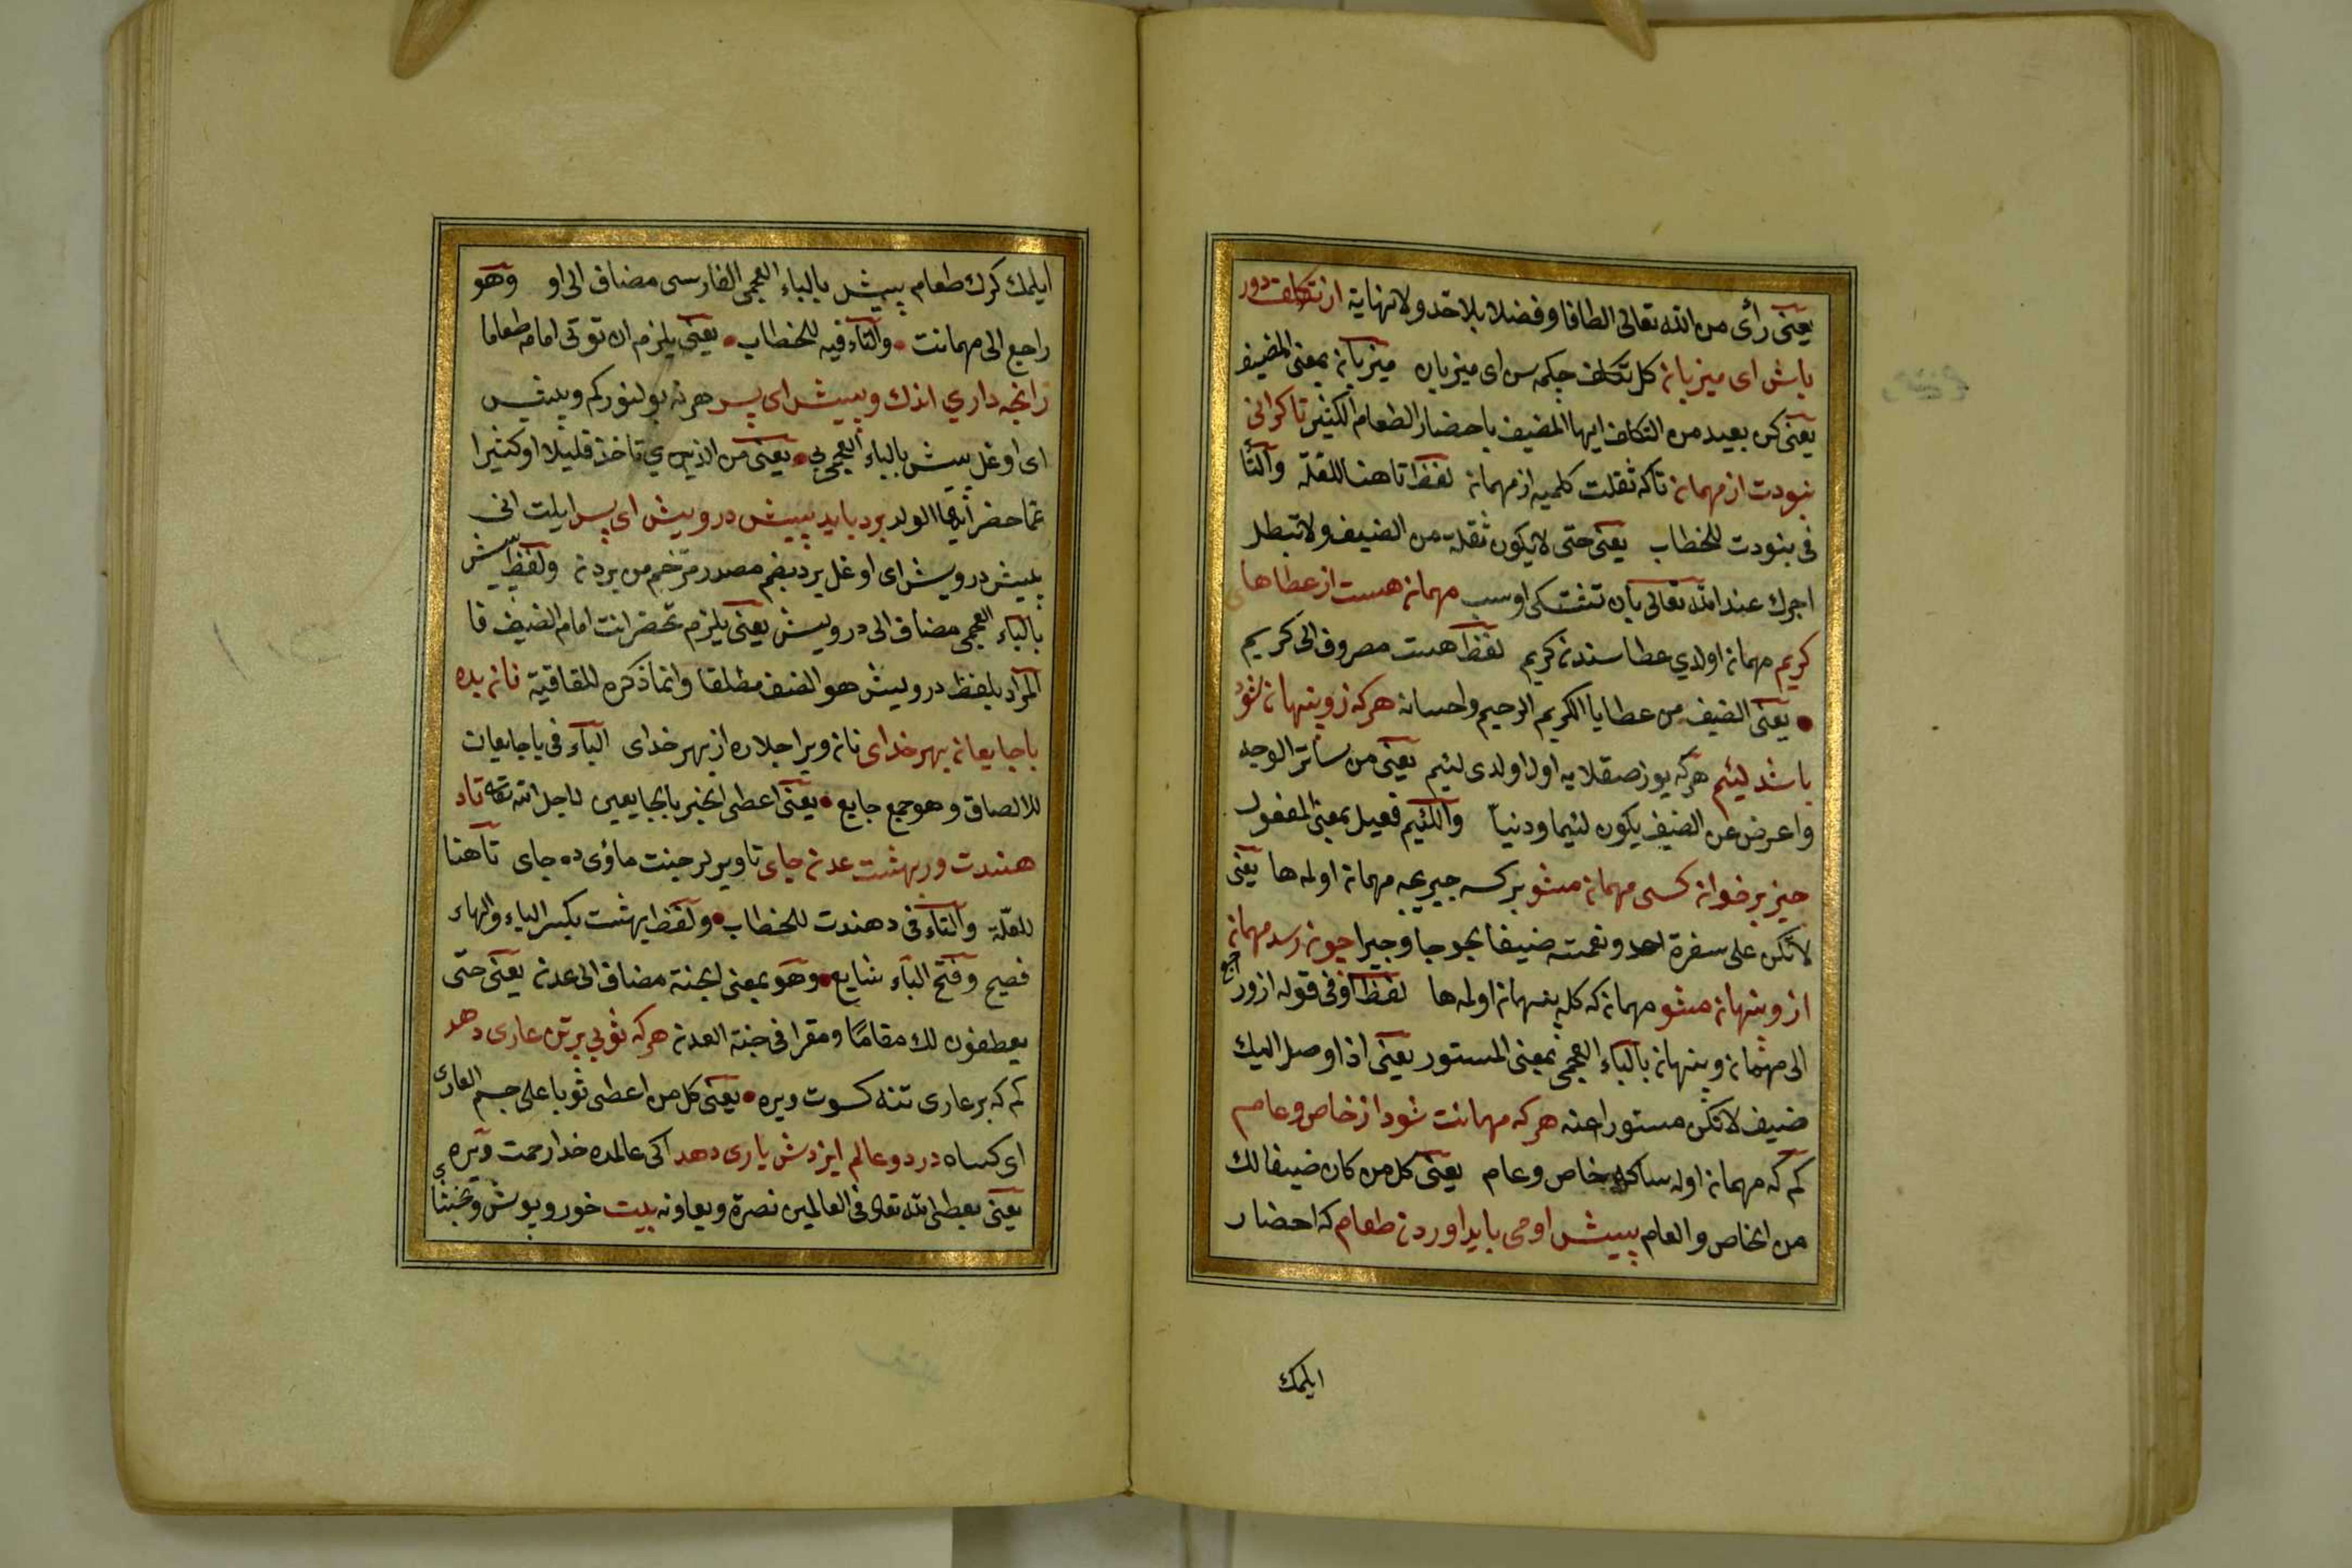 يعنى رأى من الله تعالى الطافا وفضلا بلا حد ولا نهاية از تكلف دور
باش اى ميزبان كل تكلف چكمه سن اى ميزبان ميزبان بمعنى المضيف
يعنى كن بعيد من التكلف ايها المضيف باحضار الطعام الكثير تا كرانى
نبودت از مهمان تا كه ثقلت كلميه از مهمان لفظ تا هنا للعلة والتا
فى نبودت للخطاب يعنى حتى لا يكون ثقلة من الضيف ولا تبطل
اجرك عند الله تعالى بان تشتكى او سب مهمان هست از عطاهاى
كريم مهمان اولدي عطا سندن كريم لفظ هست مصروف الى كريم
يعنى الضيف من عطايا الكريم الرحيم واحسانه هركه زو پنهان شود
باشد لئيم هركه يوز صقلايه اول اولدى لئيم يعنى من ساتر الوجه
واعرض عن الضيف يكون لئيما ودنيا واللئيم فعيل بمعنى المفعول
خيز بر خوان كسى مهمان مشو بر كسه مهمان اوله ها يعنى
لا تكن على سفرة احد ونعمته ضيفا چون رسد مهمان
از و پنهان مشو مهمان كه كله پنهان اوله ها لفظ او فى قوله ازو راجع
الى مهمان وپنهان بالباء العجمى بمعنى المستور يعنى اذا وصل اليك
ضيف لا تكن مستورا عنه هركه مهمانت شود از خاص وعام
كم كه مهمان اوله ساكا خاص وعام يعنى كل من كان ضيفا لك
من الخاص والعام پيش او مى بايد اوردن طعام كه احضار
ايلمك
ايلمك كرك طعام پيش بالباء العجمى الفارسى مضاف الى او وهو
راجع الى مهمانت والتاء فيه للخطاب يعنى يلزم ان توتى امامه طعاما
زانچه داري اندك وبيش اى پسر هر نه بولنور كم وبيش
اى اوغل بيش بالباء العربي يعنى من الذي تاخذ قليلا او كثيرا
تما حضر ايها الولد برد بايد پيش درويش اى پسر ايلت انى
پيش درويش اى اوغل برد بضم مصدر مرخم من بردن ولفظ پيش
بالباء العجمى مضاف الى درويش يعنى يلزم تحضر انت امام الضيف فا
المراد بلفظ درويش هو الضيف مطلقا وانما ذكره للقافية نان بده
با جايعان بهر خداى نان وير اجلاره از بهر خداى الباء فى با جايعان
للالصاق وهو جمع جايع يعنى اعطى الخبز بالجايعين لاجل الله تعه تا د
هندت در بهشت عدن جاى تا ويرلر جنت ماؤى ده جاى تا هنا
للعلة والتاء فى دهندت للخطاب ولفظ بهشت بكسر الباء والهاء
فصيح وفتح الباء شايع وهو بمعنى الجنة مضاف الى عدن يعنى حتى
يعطفون لك مقاما ومقرا فى جنة العدن هركه ثوبى بر تن عارى دهد
كم كه بر عارى تنه كسوت ويره يعنى كل من اعطى ثوبا على جسم العارى
اى كساه در دو عالم ايزدش يارى دهد اكى عالمده خدا رحمت ويره
يعنى يعطى الله تعالى فى العالمين نصرة ويعاونه بيت خور وپوش وبخشاى